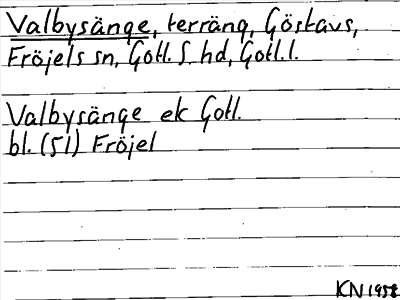 Valbysänge, terräng, Göstavs,
Fröjels sn, Gotl. S. hd, Gotl.l.
Valbysänge ek Gotl.
bl. (51) Fröjel
KN 1958